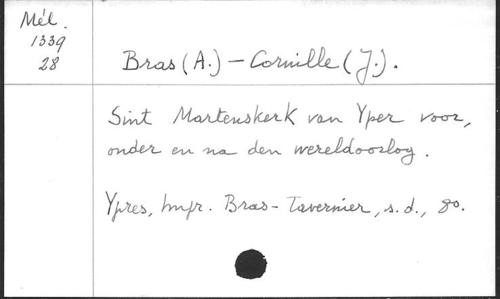 Mél.
1339
28
Bras (A.) - Cornille (J.).
Sint Martenskerk van Yper voor,
onder en na den wereldoorlog.
Ypres, Impr. Bras-Tavernier, s.d., 8o.